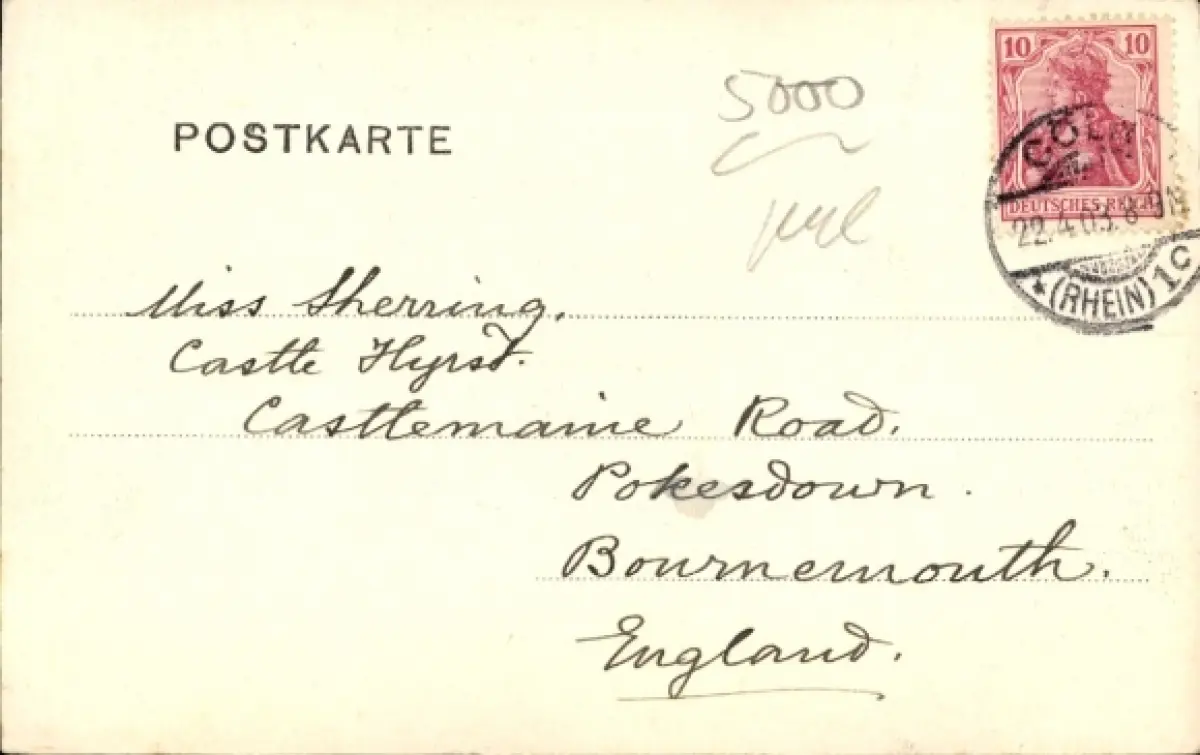 10 10
DEUTSCHES REICH
CÖLN
22.4.03. 8-9
(RHEIN) 1
POSTKARTE
5000
Miss Sherring,
Castle Hyrst.
Castlemaine Road.
Pokesdown.
Bournemouth.
England.